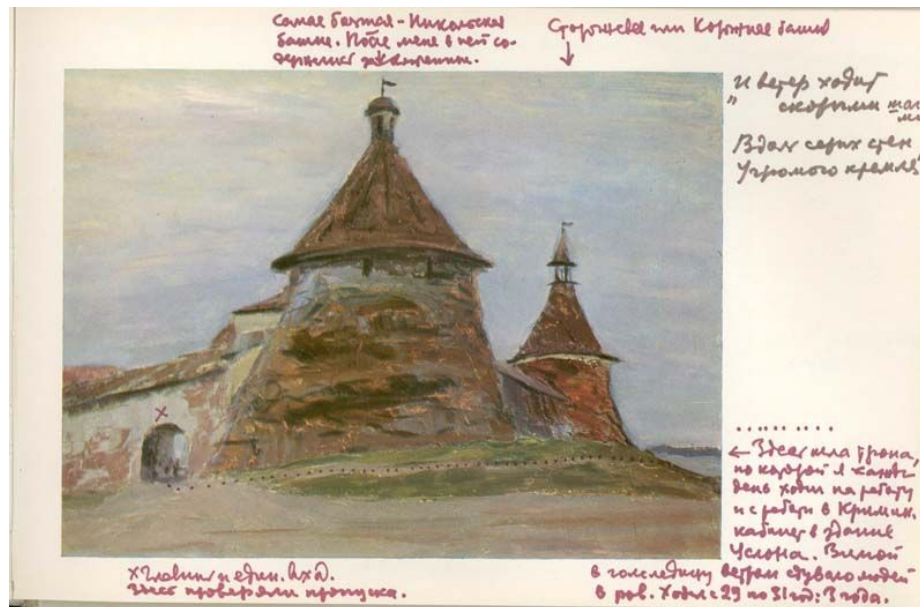 Самая большая - Никольская
башня. После меня в ней со-
держались заключенные.
Сторожевая или Корожная башня
"И ветер ходит
скорыми шага
ми
Вдоль серых стен
Угрюмого кремля
← Здесь шла тропа,
по которой я каждый
день ходил на работу
и с работы в Кримин.
кабинет в здание
Услона. Зимой
в гололедицу ветром сдувало людей
в ров. Ходил с 29 по 31 год: 3 года.
х Главный и един. вход.
Здесь проверяли пропуска.